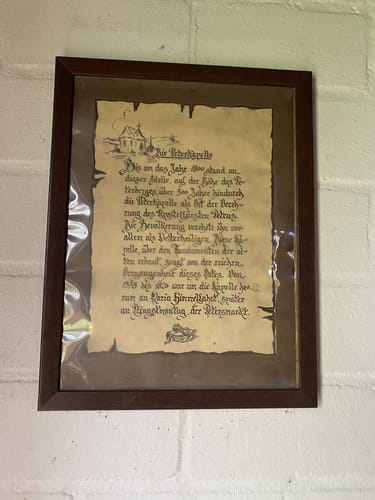 Die Peterkapelle
Bis um das Jahr 1800 stand an
dieser Stelle, auf der Höhe des Pe-
terberges, über 500 Jahre hindurch
die Peterkapelle als Ort der Vereh-
rung des Apostelfürsten Petrus.
Die Bevölkerung verehrte ihn vor
allem als Wetterheiligen. Diese Ka-
pelle, über den Fundamenten der al-
ten erbaut, zeugt von der reichen
Vergangenheit dieses Ortes. Von
bis war um die Kapelle he-
rum an Maria Himmelfahrt, später
an Pfingstmontag, der Petersmarkt.